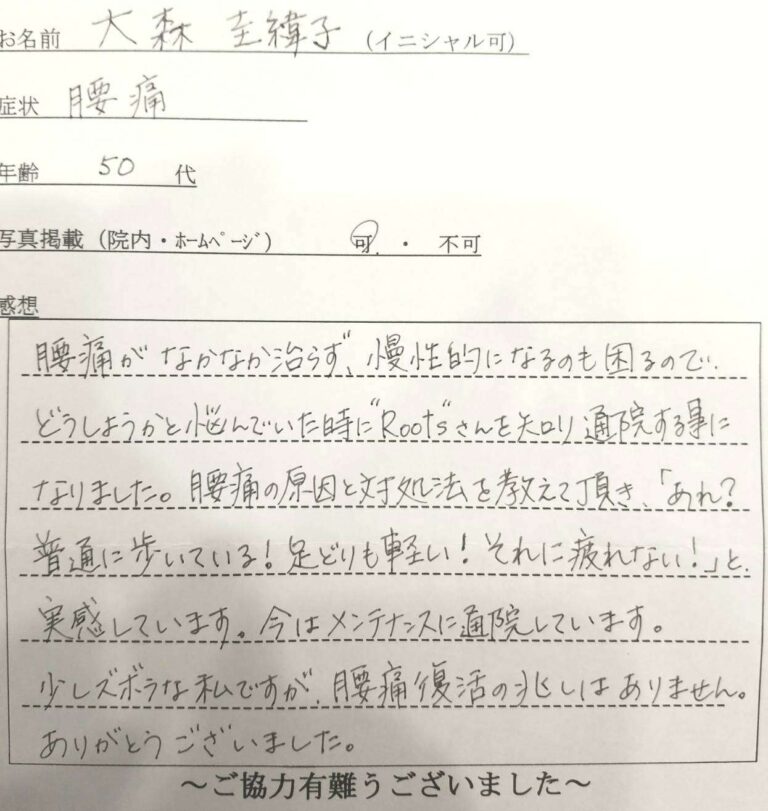 お名前 大森 圭緯子 (イニシャル可)
症状 腰痛
年齢 50 代
写真掲載 (院内・ホームページ) 可 ・ 不可
感想
腰痛がなかなか治らず、慢性的になるのも困るので、
どうしようかと悩んでいた時に"Roots"さんを知り通院する事に
なりました。腰痛の原因と対処法を教えて頂き、「あれ?
普通に歩いている!足どりも軽い!それに疲れない!」と、
実感しています。今はメンテナンスに通院しています。
少しズボラな私ですが、腰痛復活の兆しはありません。
ありがとうございました。
～ご協力有難うございました～